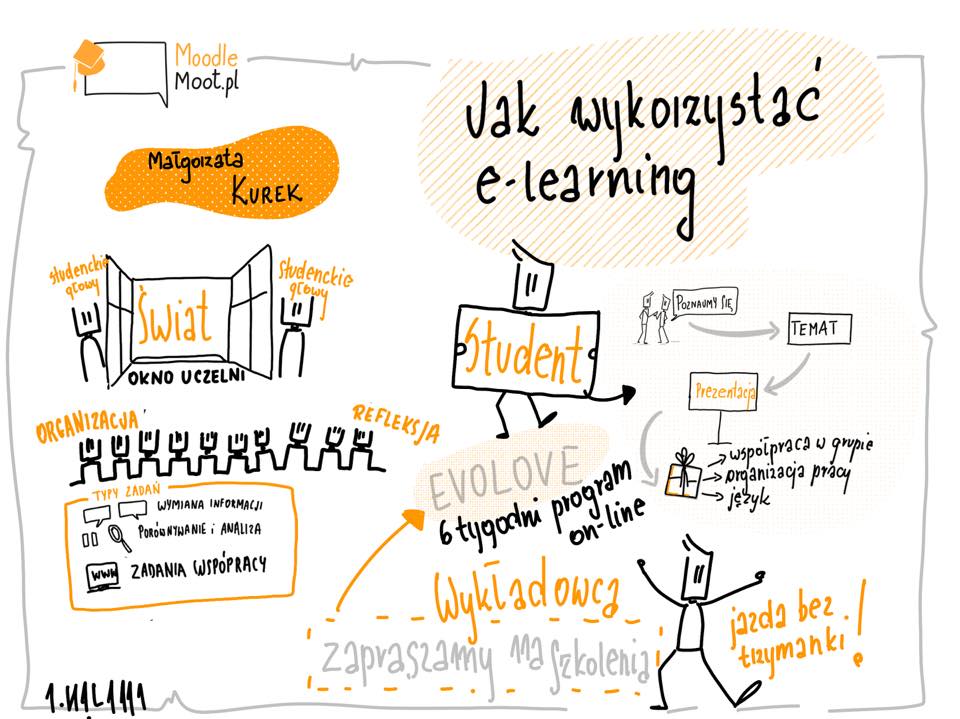 Moodle
Moot.pl
Jak wykorzystać
e-learning
Małgorzata
KUREK
studenckie
głowy
Świat
studenckie
głowy
OKNO UCZELNI
ORGANIZACJA
REFLEKSJA
TYPY ZADAŃ
WYMIANA INFORMACJI
PORÓWNYWANIE i ANALIZA
WWW
ZADANIA WSPÓPRACY
Student
POZNAJMY SIĘ
TEMAT
Prezentacja
współpraca w grupie
organizacja pracy
język
EVOLOVE
6 tygodni program
on-line
Wykładowca
zapraszamy na szkolenia
jazda bez
trzymanki!